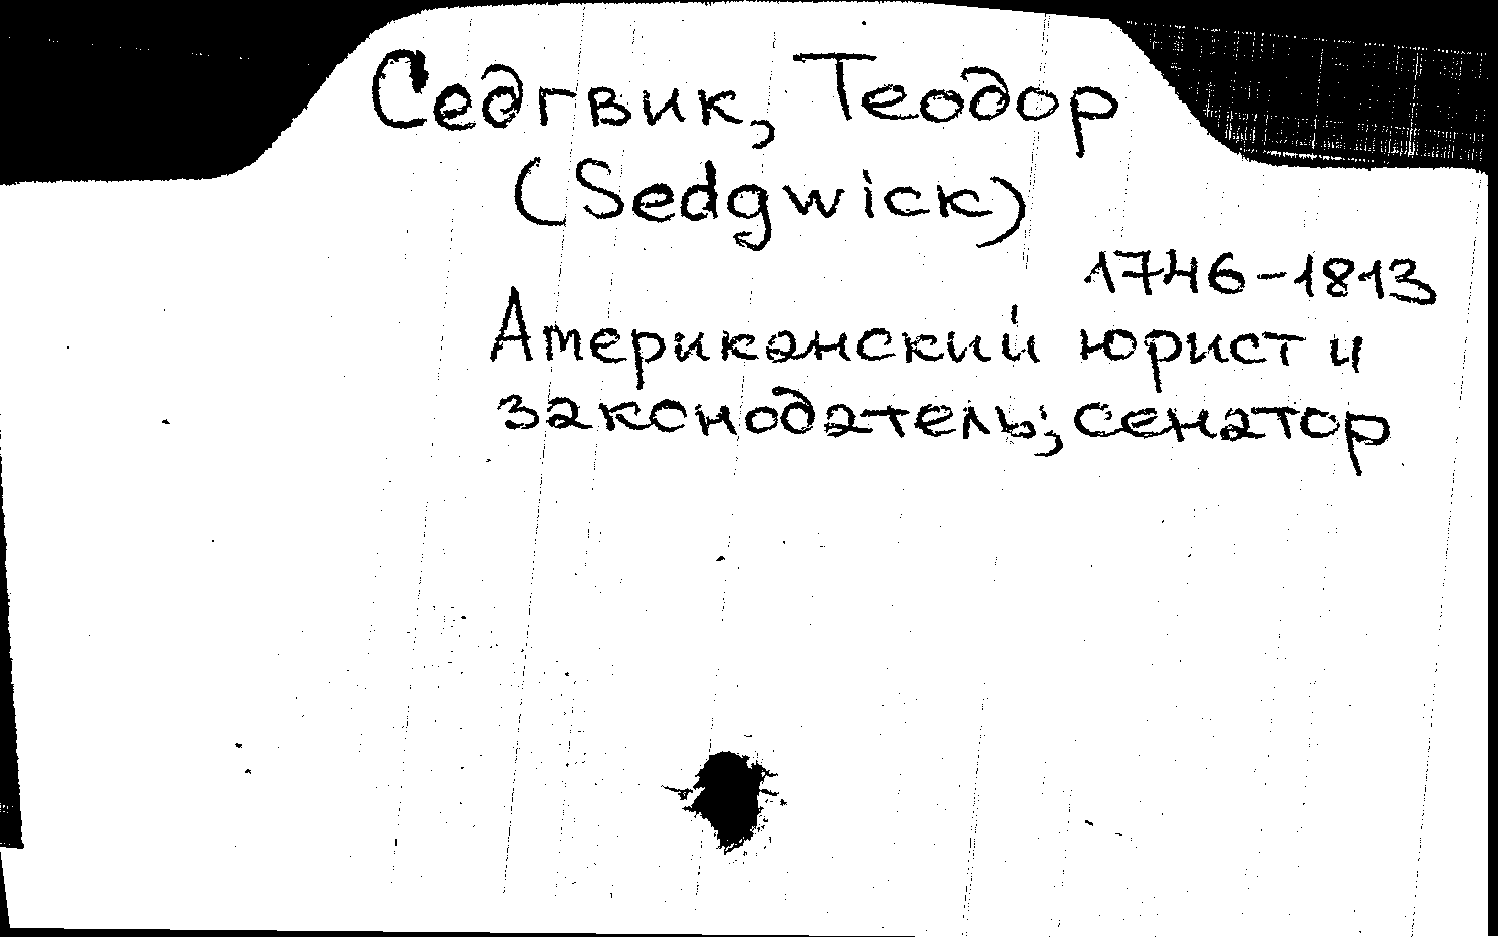 Седгвик, Теодор
(Sedgwick)
1746-1813
Американский юрист и
законодатель; сенатор